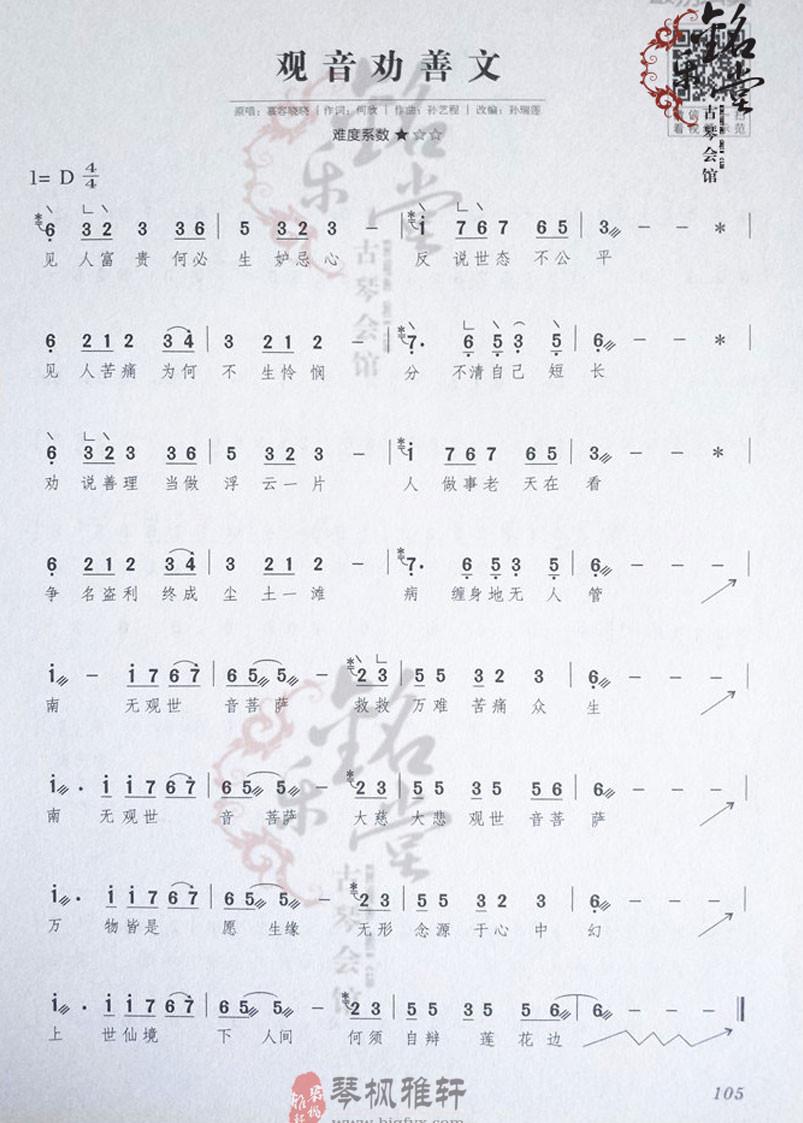 铭乐堂
古琴会馆
观音劝善文
原唱：慕容晓晓 | 作词：何欣 | 作曲：孙艺程 | 改编：孙瑞莲
难度系数★☆☆
1= D 4/4
6 32 3 36 | 5 32 3 － | i 767 65 | 3 － － * |
见 人富 贵 何必 生 妒忌心 反 说世态 不公 平
6 212 34 | 3 21 2 － | 7. 6535 | 6 － － * |
见 人苦痛 为何 不 生怜悯 分 不清自己 短 长
6 323 35 | 5 323 － | i 767 65 | 3 － － * |
劝 说善理 当做 浮 云一片 人 做事老 天在 看
6 212 34 | 3 212 － | 7. 6535 6 | 6 － －
争 名盗利 终成 尘 土一滩 病 缠身地无 人 管
i － i767 | 65 5 － | 23 55 35 5 | 6 － －
南 无观世 音菩萨 救救 万难 苦痛 众 生
i. ii767 | 65 5 － | 23 55 35 56 | 6 － －
南 无观世 音 菩萨 大慈 大悲 观世 音菩 萨
i. ii767 | 65 5 － | 23 | 55 35 2 3 | 6 － －
万 物皆是 愿 生缘 无形 念源 于心 中 幻
i. ii767 | 65 5 － 23 | 55 35 5 6 | 6 － －
上 世仙境 下 人间 何须 自辩 莲 花 边
琴枫雅轩
105